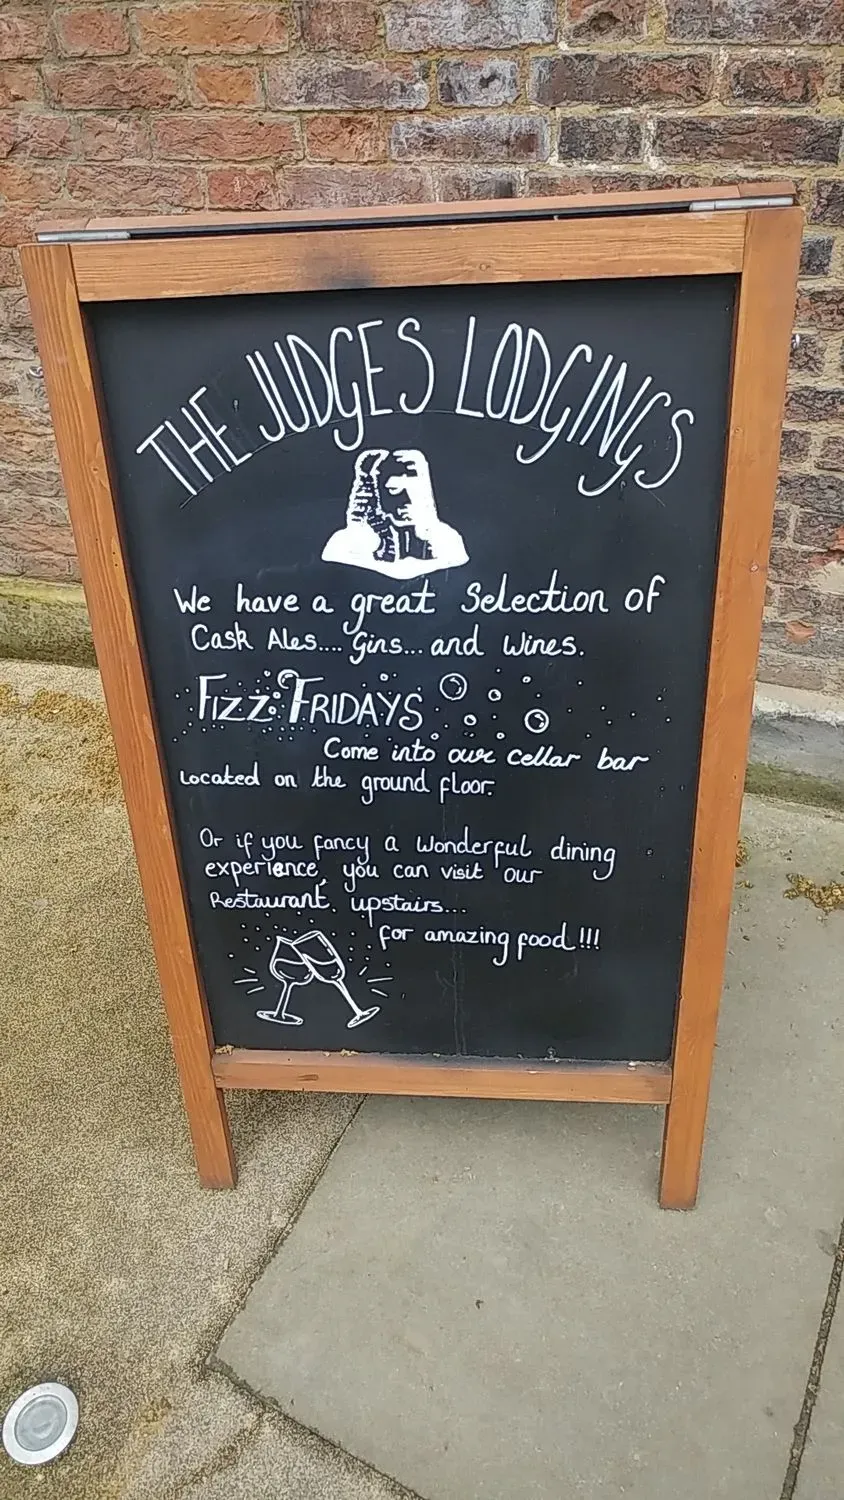 THE JUDGES LODGINGS
We have a great Selection of
Cask Ales.... Gins... and Wines.
FIZZ FRIDAYS
Come into our cellar bar
Located on the ground floor.
Or if you fancy a wonderful dining
experience, you can visit our
Restaurant, upstairs...
for amazing food!!!